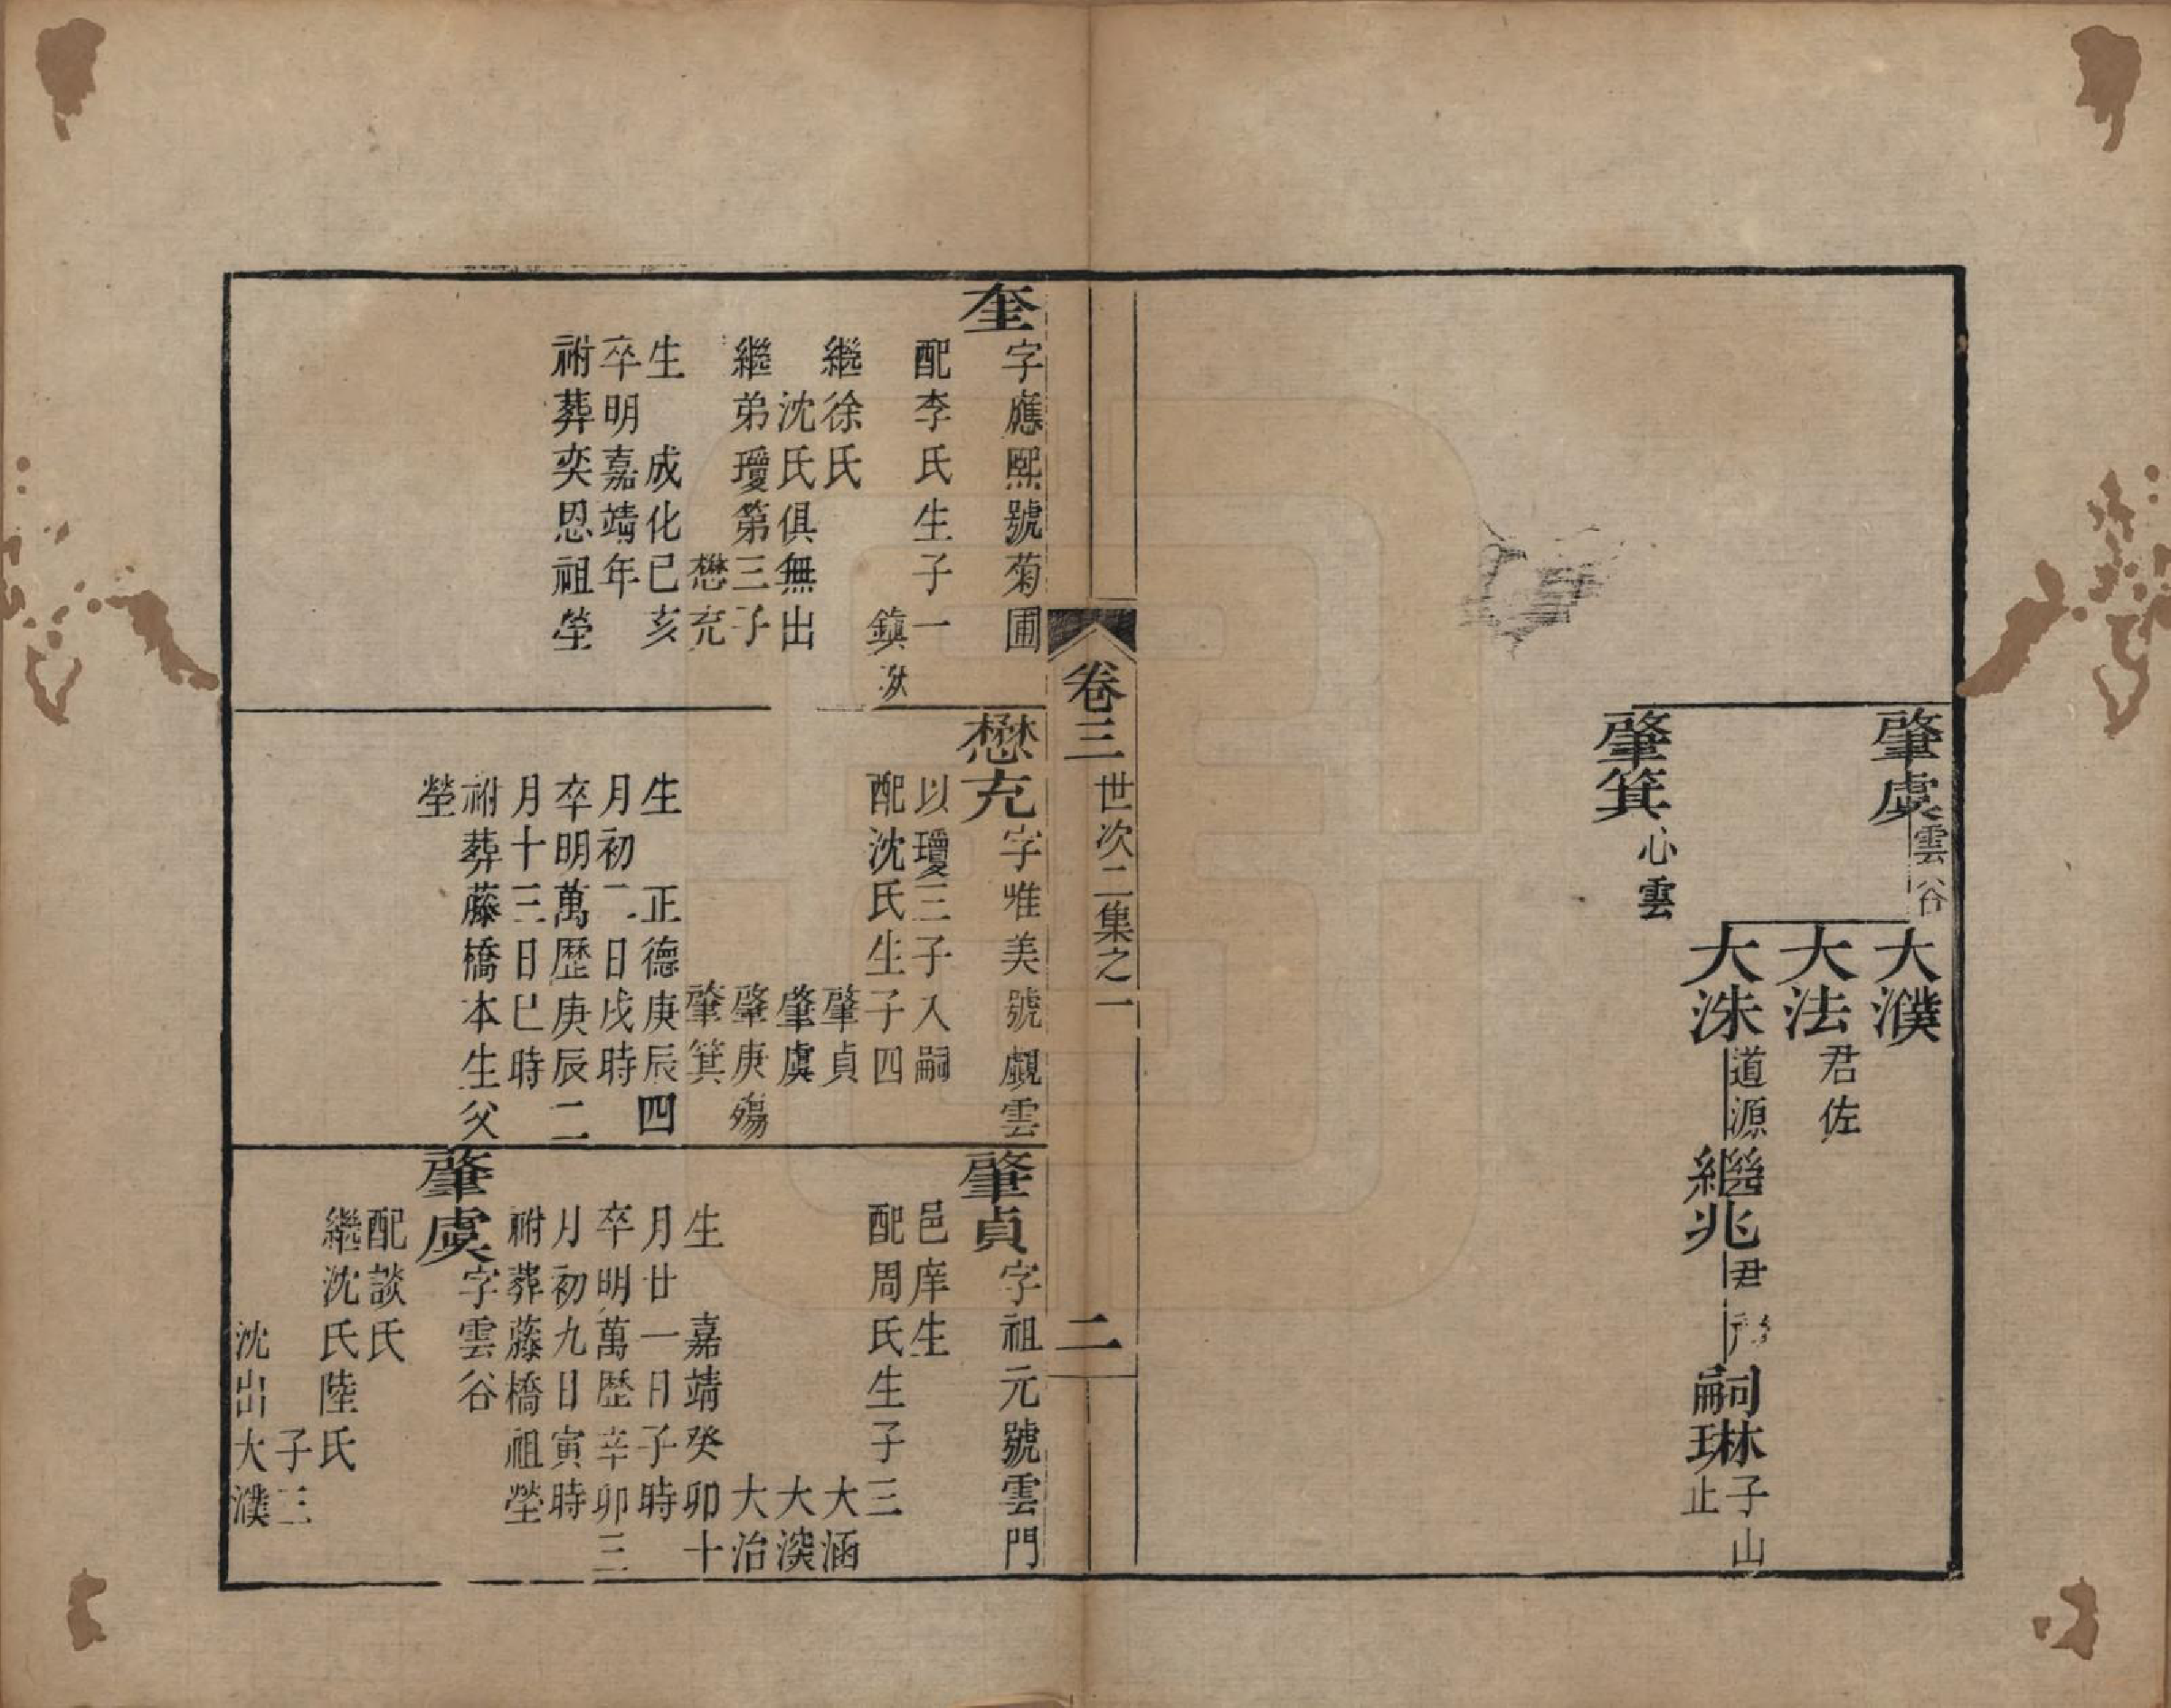 肇虞雲谷
大濮
大法君佐
大洙道源
繼兆尹
嗣琳子山止
肇箕心雲
卷三 世次二集之一 二
奎字應熙號菊圃
配李氏生子一
鎮
繼徐氏
沈氏俱無出
繼弟瓊第三子
懋充
生 成化己亥
卒明嘉靖年
祔葬奕思祖塋
懋充字唯美號覷雲
以瓊三子入嗣
配沈氏生子四
肇貞
肇虞
肇庚殤
肇箕
生 正德庚辰四
月初二日戌時
卒明萬歷庚辰二
月十三日巳時
祔葬藤橋本生父
塋
肇貞字祖元號雲門
邑庠生
配周氏生子三
大涵
大渶
大治
生 嘉靖癸卯十
月廿一日子時
卒明萬歷辛卯三
月初九日寅時
祔葬藤橋祖塋
肇虞字雲谷
配談氏
繼沈氏陸氏
子三
沈出大濮